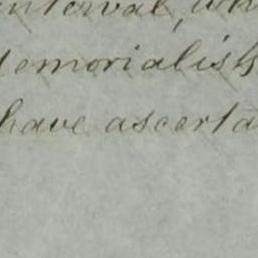 interval, wh
emorialish
have ascerta